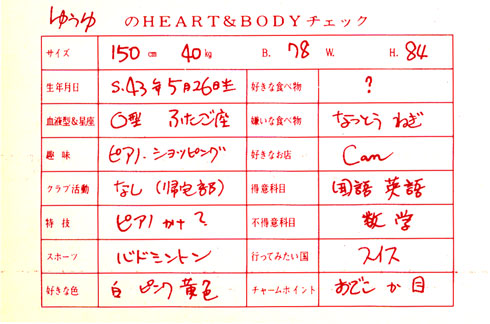 ゆうゆ のHEART&BODYチェック
サイズ 150cm 40kg B. 78 W. H. 84
生年月日 S.43年5月26日生 好きな食べ物 ?
血液型&星座 O型 ふたご座 嫌いな食べ物 なっとう ねぎ
趣味 ピアノ.ショッピング 好きなお店 Can
クラブ活動 なし(帰宅部) 得意科目 国語 英語
特技 ピアノかナ? 不得意科目 数学
スポーツ バドミントン 行ってみたい国 スイス
好きな色 白 ピンク 黄色 チャームポイント おでこ か 目